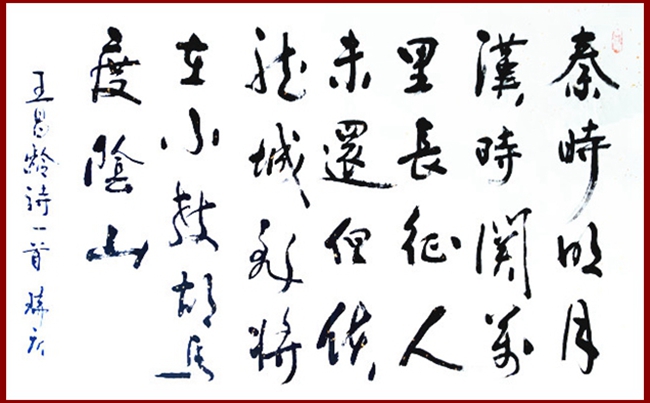 秦時明月
漢時關萬
里長征人
未還但使
龍城飛將
在不教胡馬
度陰山
王昌齡詩一首